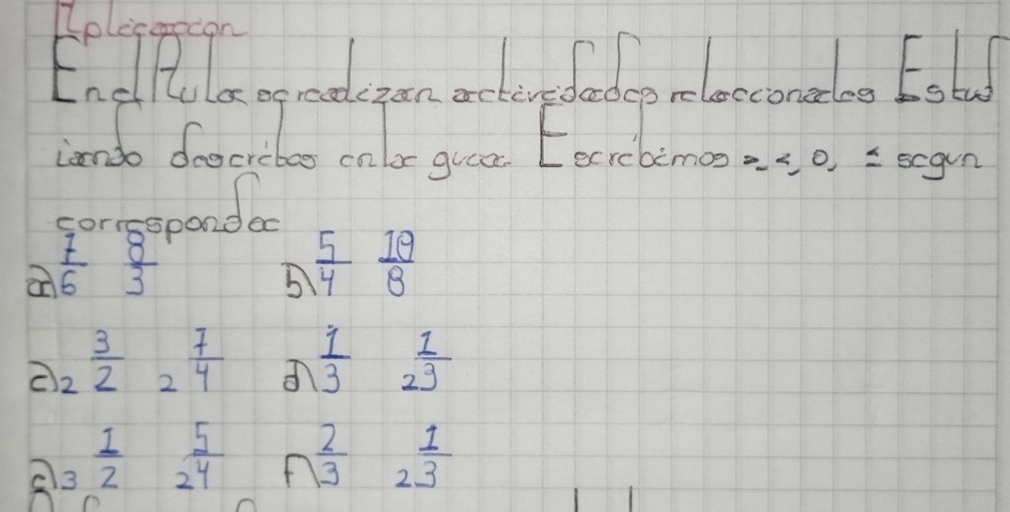 Aplicacion
En el Aula se realizan actividades relaccionadas Estud
iando descritas en la guia. Escribimos >, <, o, = segun
corresponda
a) 7/6 8/3 b) 5/4 10/8
c) 2 3/2 2 7/4 d) 1/3 2 1/3
e) 3 1/2 2 5/4 f) 2/3 2 1/3